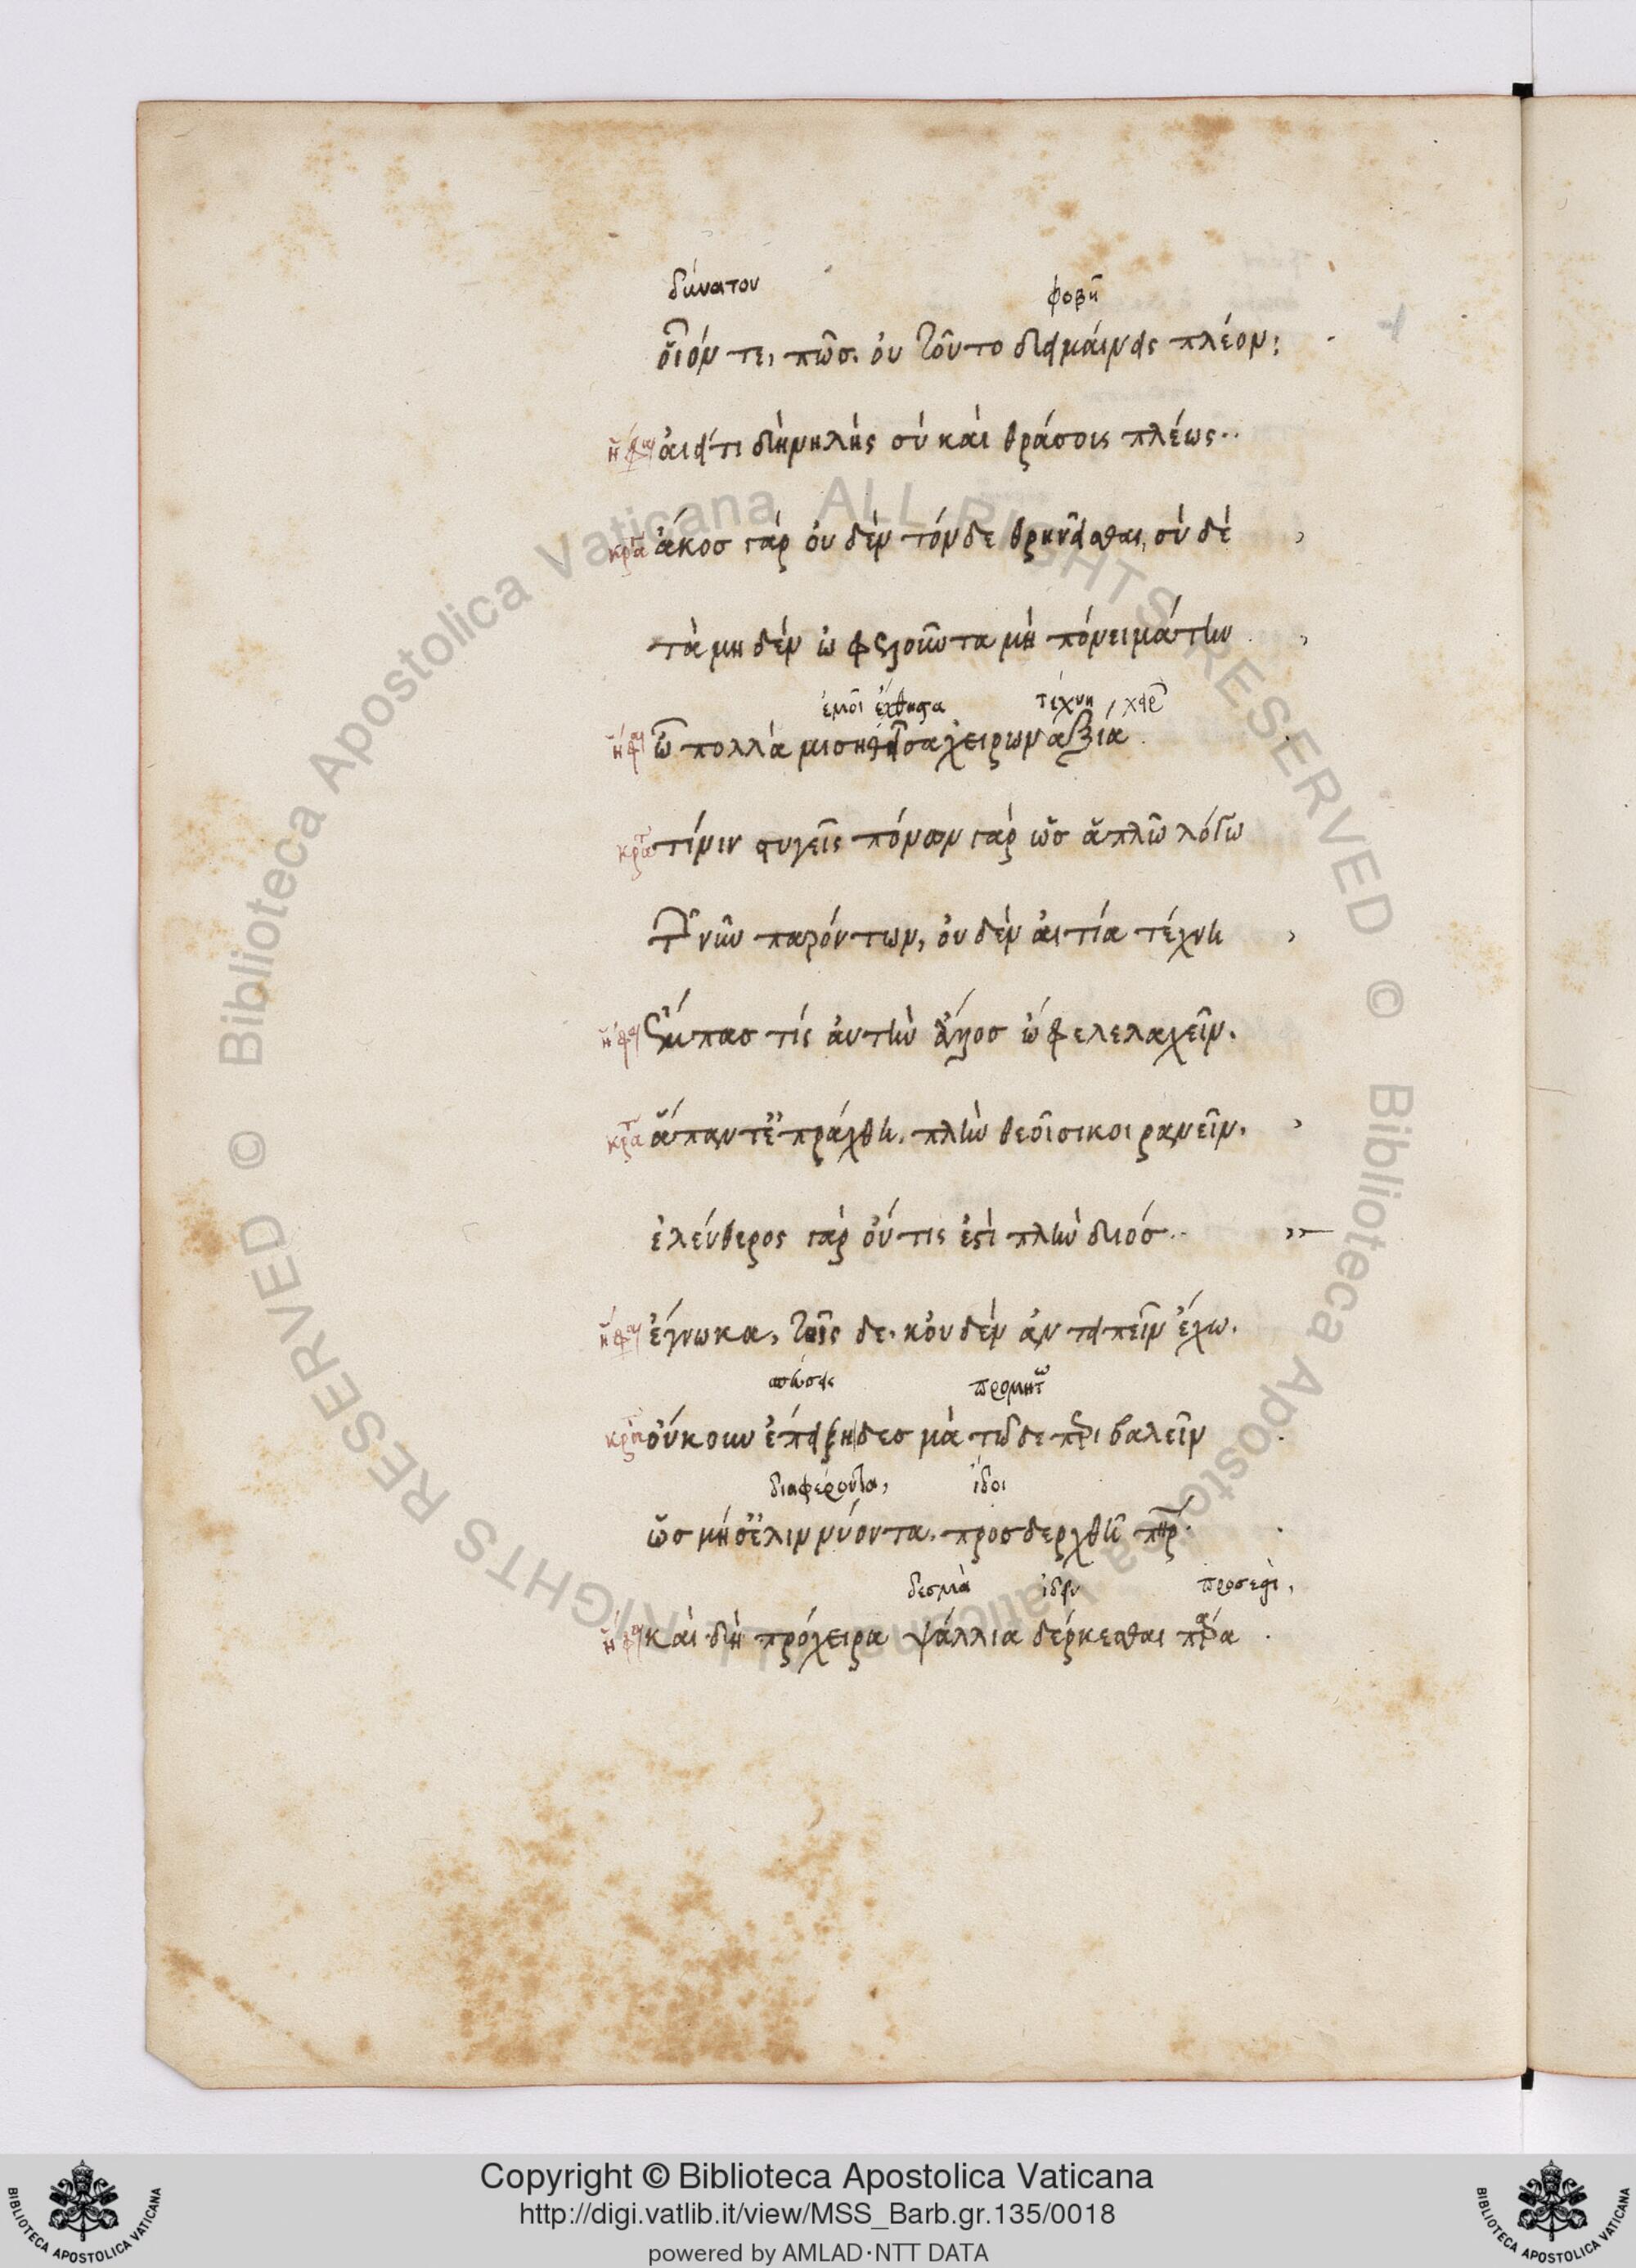 δύνατον φοβῆ
οἷόν τε, πῶς. οὐ τοῦτο δειμαίνεις πλέον;
ἥφαι ἀεί τι δὴ νηλὴς σὺ καὶ θράσοις πλέως..
κρατ ἄκοσ γὰρ οὐδὲν τόνδε θρηνεῖσθαι, σὺ δὲ
τὰ μηδὲν ὠφελοῦντα μὴ πόνει μάτην
ἐμοὶ τέχνη
ἥφαι ὦ πολλὰ μισηθεῖσα χειρωναξία
κρατ τί νιν στυγεῖς πόνων γὰρ ὡσ ἁπλῶ λόγω
τῶν νῦν παρόντων, οὐδὲν αἰτία τέχνη
ἥφαι ἔμπασ τίς αὐτὴν ἄλλοσ ὤφελε λαχεῖν.
κρατ ἅπαντ' ἐπράχθη. πλὴν θεοῖσι κοιρανεῖν.
ἐλεύθερος γὰρ οὔτις ἐστὶ πλὴν διόσ..
ἥφαι ἔγνωκα, τοῖς δε. κοὐδὲν ἀντειπεῖν ἔχω.
προμηθ
κρατ οὔκουν ἐπείξη δεσμὰ τῶδε περιβαλεῖν
διαφέροντα, ἴδοι
ὡσ μή σ' ἐλιννύοντα. προσδερχθῆ πηρ
δεσμὰ ἰδεῖν
ἥφαι καὶ δὴ πρόχειρα ψάλλια δέρκεσθαι πάρα
Copyright © Biblioteca Apostolica Vaticana
http://digi.vatlib.it/view/MSS_Barb.gr.135/0018
powered by AMLAD·NTT DATA
BIBLIOTECA APOSTOLICA VATICANA
BIBLIOTECA APOSTOLICA VATICANA
© Biblioteca Apostolica Vaticana ALL RIGHTS RESERVED © Biblioteca Apostolica Vaticana ALL RIGHTS RESERVED